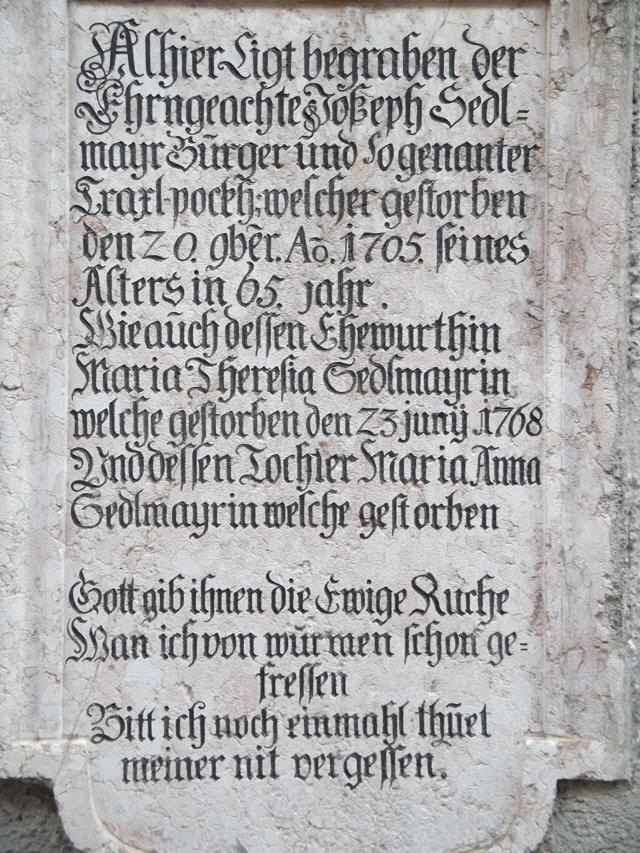 Alhier Ligt begraben der
Ehrngeachte Joseph Sedl=
mayr Bürger und sogenanter
Traxl-pockh; welcher gestorben
den 20. 9bēr. Aō. 1705. seines
Alters in 65. jahr.
Wie aůch dessen Ehewurthin
Maria Theresia Sedlmayrin
welche gestorben den 23 junÿ 1768
Vnd dessen Tochter Maria Anna
Sedlmayrin welche gestorben
Gott gib ihnen die Ewige Ruehe
Wan ich von würmen schon ge=
fressen
Bitt ich noch einmahl thüet
meiner nit vergessen.